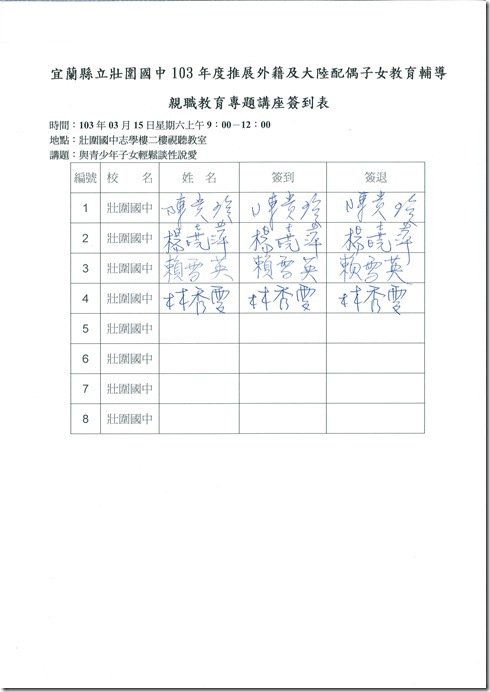 宜蘭縣立壯圍國中 103 年度推展外籍及大陸配偶子女教育輔導
親職教育專題講座簽到表
時間：103 年 03 月 15 日星期六上午 9：00－12：00
地點：壯圍國中志學樓二樓視聽教室
講題：與青少年子女輕鬆談性說愛
編號 校名 姓名 簽到 簽退
1 壯圍國中 陳貴珍 陳貴珍 陳貴珍
2 壯圍國中 楊曉萍 楊曉萍 楊曉萍
3 壯圍國中 賴雪英 賴雪英 賴雪英
4 壯圍國中 林秀雯 林秀雯 林秀雯
5 壯圍國中
6 壯圍國中
7 壯圍國中
8 壯圍國中